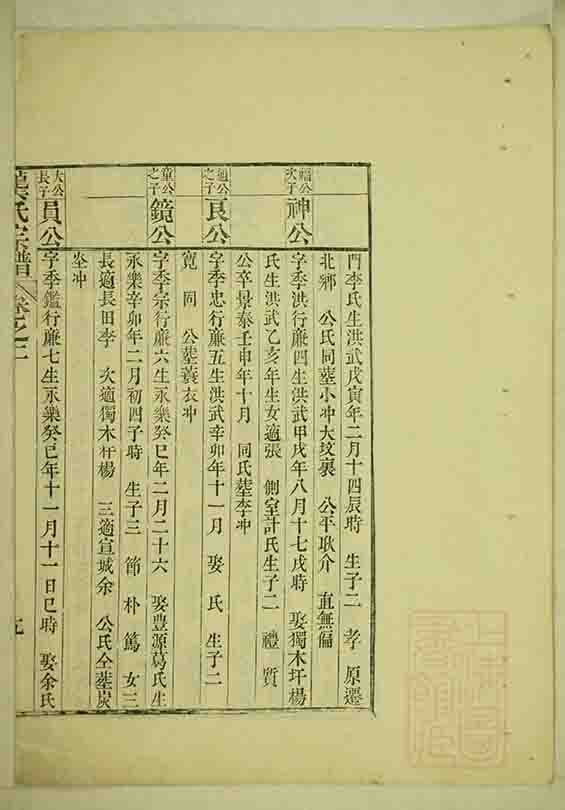 門李氏生洪武戊寅年二月十四辰時 生子二 孝 原遷
北鄉 公氏同塟小冲大坟裏 公平耿介 直無偏
福公次子
神公
字季洪行廉四生洪武甲戌年八月十七戌時 娶獨木圩楊
氏生洪武乙亥年生女適張 側室計氏生子二 禮 質
公卒景泰壬申年十月 同氏塟李冲
迴公之子
艮公
字季忠行廉五生洪武辛卯年十一月 娶 氏 生子二
寬 同 公塟蓑衣冲
童公之子
鏡公
字季宗行廉六生永樂癸巳年二月二十六 娶豊源葛氏生
永樂辛卯年二月初四子時 生子三 節 朴 篤 女三
長適長田李 次適獨木杆楊 三適宣城余 公氏仝塟炭
坐冲
大公長子
員公
字季鑑行廉七生永樂癸巳年十一月十一日巳時 娶余氏
氏宗譜 卷之二
九